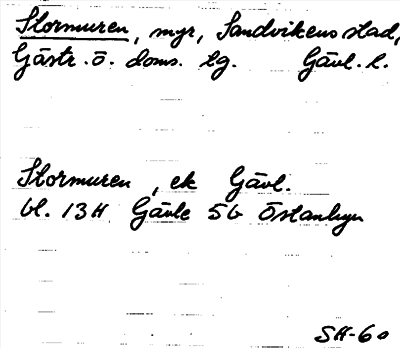 Stormuren, myr, Sandvikens stad,
Gästr. ö. doms. lg. Gävl. l.
Stormuren, ek Gävl.
bl. 13H Gävle 5b Östanbyn
SH-60